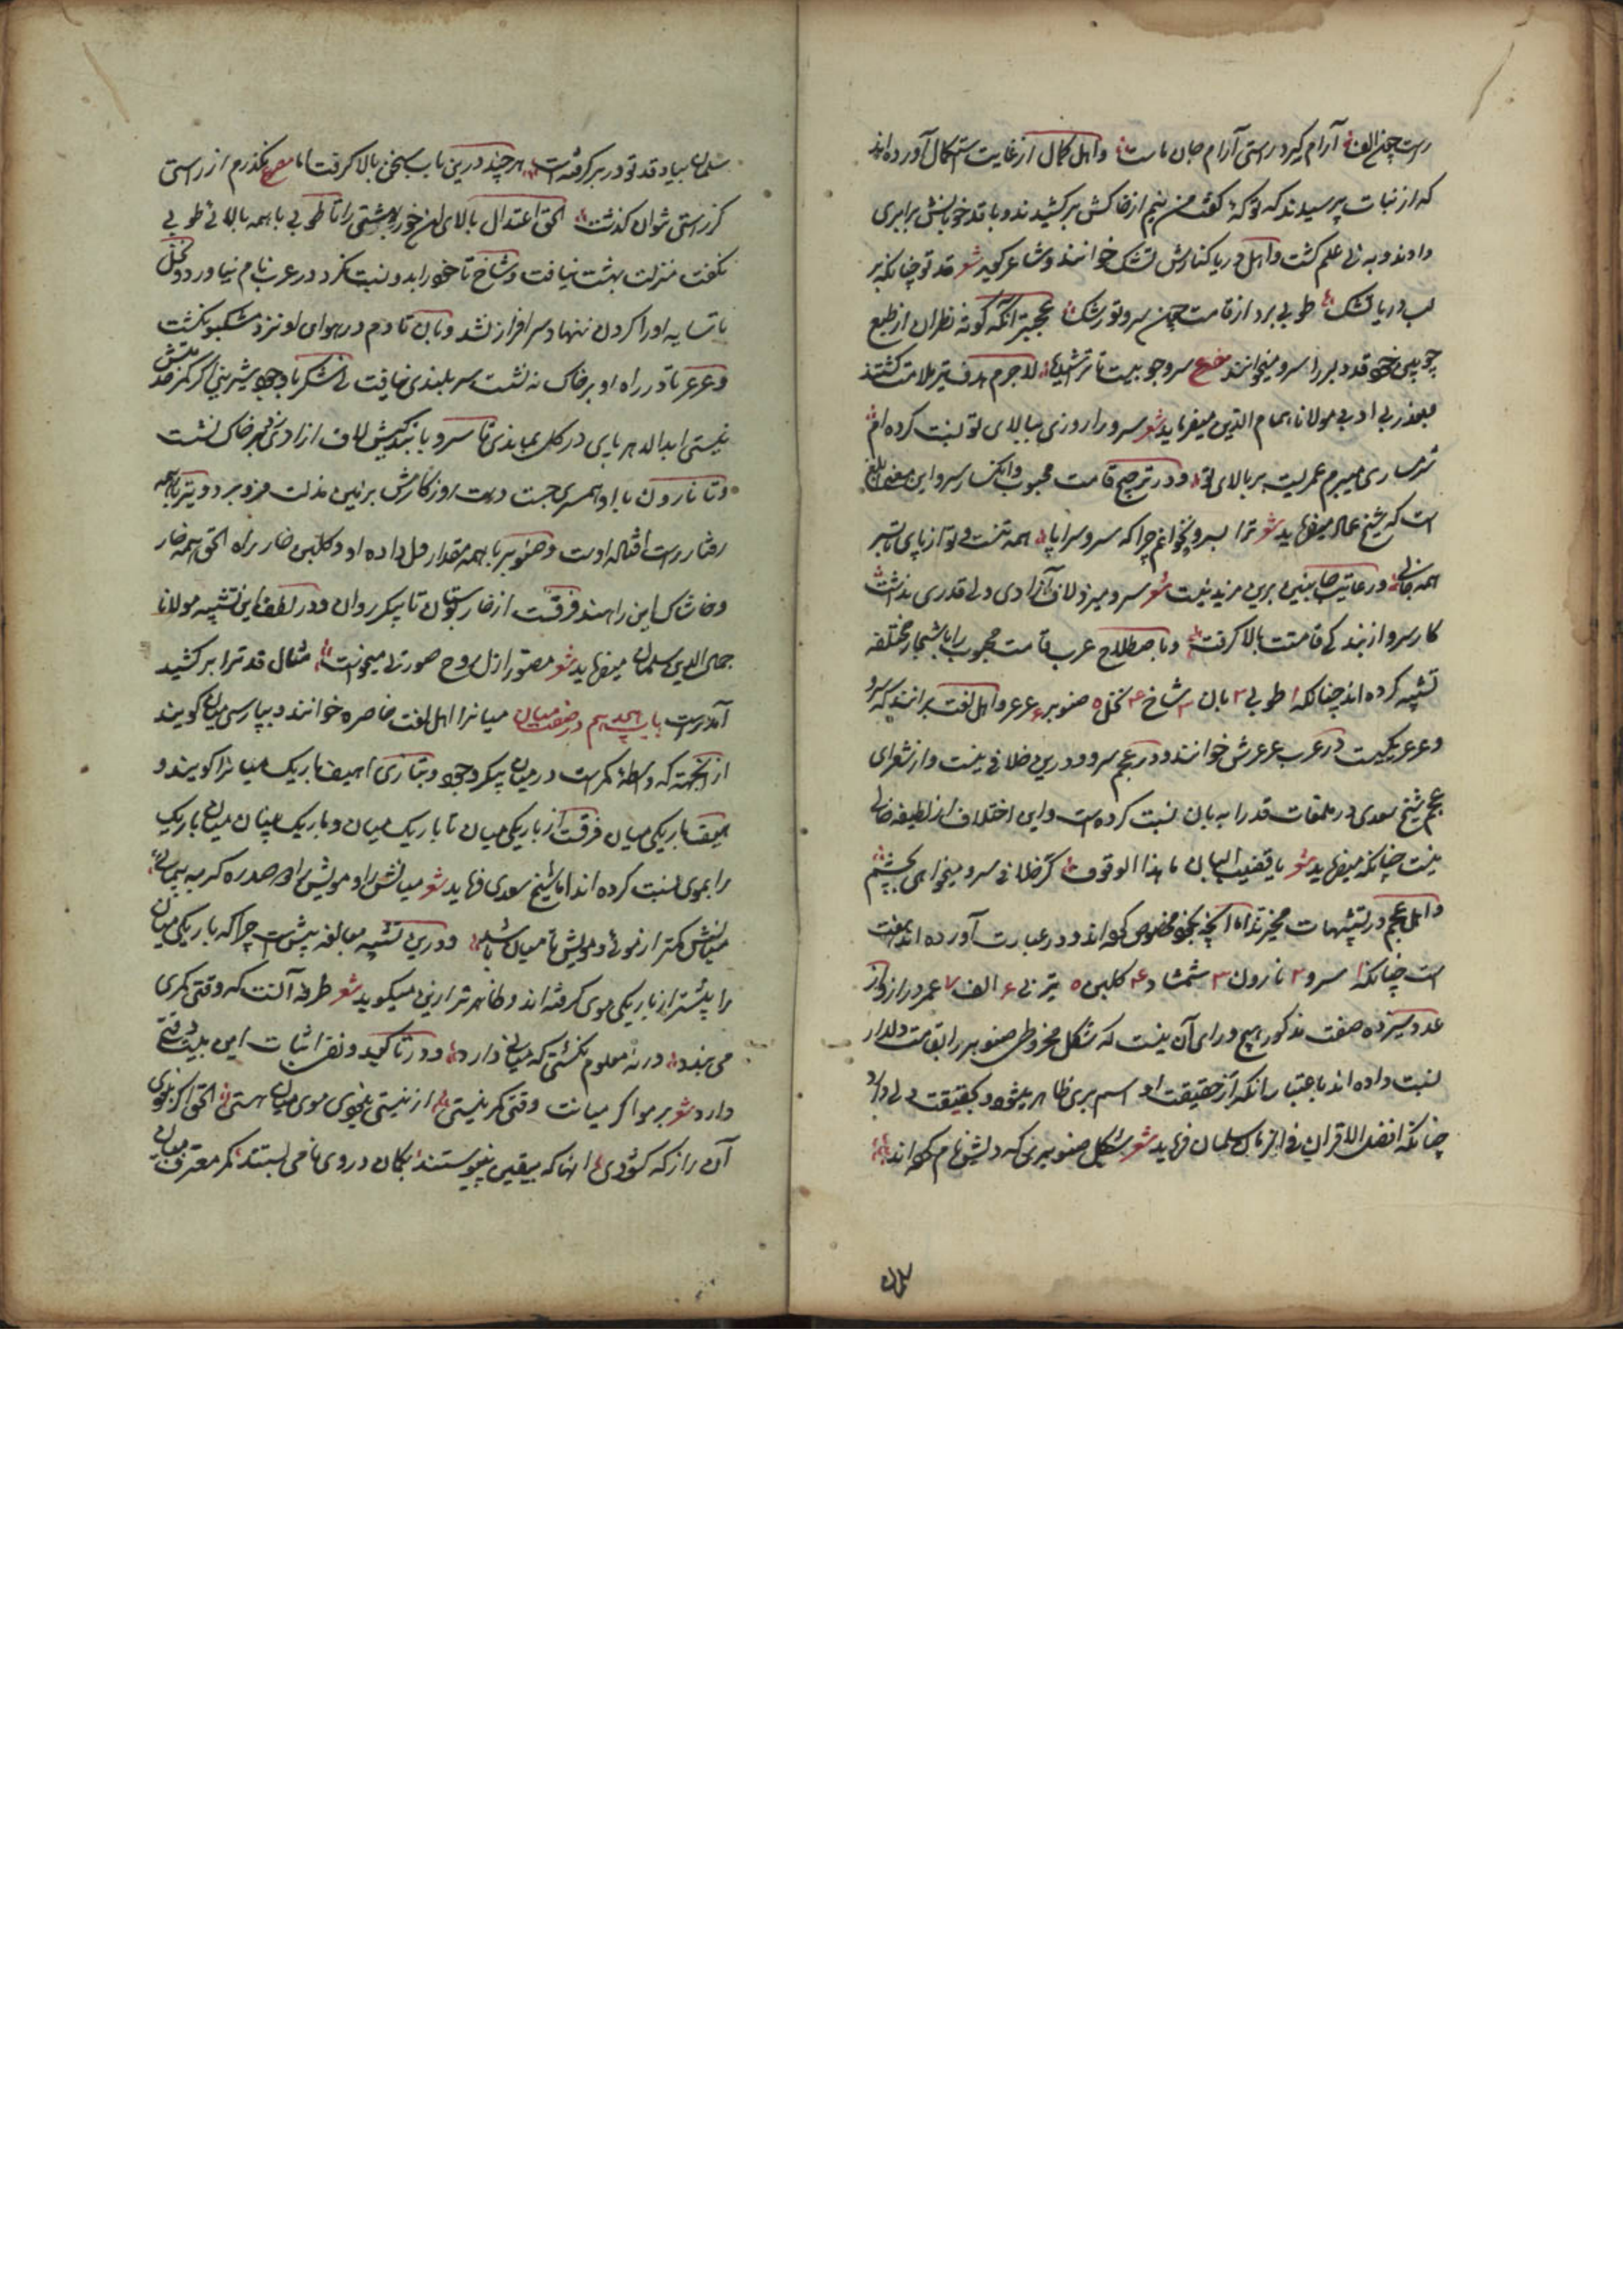 راست چون الف آرام گیرد راستی آرام جان ماست واهل کمال از غایت استکمال آورده اند
که از نبات پرسیدند که تو که گفت من نیم از خاکش برکشیدند و با قد خوبانش برابری
دادند و به نی علم گشت واهل دریا کنارش لشک خوانند و شاعر گوید شعر قد تو چنانکه بر
لب دریا لشک طوبی برد از قامت چون سرو تو رشک عجبتر آنکه کوته نظران از طبع
چوبین خود قد دلبر را سرو میخوانند مصرع سرو چوبیست ناتراشیده لاجرم هدف تیر ملامت گشتند
بعذر بی ادبی مولانا همام الدین میفرماید شعر سرو را روزی ببالای تو نسبت کرده ام
شرمساری میبرم عمریست بر بالای تو ودر ترجیح قامت محبوب وانکسار سرو این معنی بلیغ
است که شیخ عماد میفرماید شعر ترا بسرو نخوانم چرا که سرو سراپا همه تنست و تو از پای تا بسر
همه جانی ودر رعایت جانبین برین مزید نیست شعر سرو میزد لاف آزادی ولی قدری نداشت
کار سرو از بندگی قامتت بالا گرفت وباصطلاح عرب قامت محبوب را باشجار مختلفه
تشبیه کرده اند چنانکه ۱ طوبی ۲ بان ۳ شاخ ۴ نخل ۵ صنوبر ۶ عرعر واهل لغت برانند که سرو
وعرعر یکیست در عرب عرعرش خوانند ودر عجم سرو ودرین خلافی نیست واز شعرای
عجم شیخ سعدی در ملمعات قد را به بان نسبت کرده است واین اختلاف از لطیفه خالی
نیست چنانکه میفرماید شعر یا قضیب البان ما هذا الوقوف گر خلاف سرو میخواهی بچشم
واهل عجم در تشبیهات مخیرند اما آنچه بخود مخصوص کرده اند ودر عبارت آورده اند هفت
است چنانکه ۱ سرو ۲ نارون ۳ شمشاد ۴ گلبن ۵ تیر نی ۶ الف ۷ عمر دراز واز
عدد سیزده صفت مذکور هیچ ورای آن نیست که شکل مخروطی صنوبر را بقامت دلدار
نسبت داده اند باعتبار آنکه از حقیقت او اسم بری ظاهر میشود وبحقیقت دلی دارد
چنانکه افضل الاقران فی الزمان سلمان فرماید شعر شکل صنوبری که دلش نام کرده اند
سلمان بیاد قد تو در بر گرفته است هرچند درین باب سخن بالا گرفت اما مصرع نگذرم از راستی
کز راستی نتوان گذشت الحق اعتدال بالای این حور بهشتی را تا طوبی با همه بالائی طوبی
نگفت منزلت بهشت نیافت وشاخ تا خود را بدو نسبت نکرد در عرب نام نیاورد ونخل
تا سایه او را گردن ننهاد سرافراز نشد وبان تا دم در هوای او نزد مشکبو نگشت
وعرعر تا در راه او بر خاک ننشست سربلندی نیافت نی شکر با وجود شیرینی اگر کمر خدمتش
نبستی ابدالدهر پای در گل بماندی تا سرو با بندگیش لاف ازادی زد بر خاک نشست
وتا نارون با او همسری جست دست روزگارش بر زمین مذلت فرو برد وتیر با همه
رفتار راست افتاده اوست وصنوبر با همه مقدار دل داده او وگلبن خار راه الحق همه خار
وخاشاک این راهند فرقست از خار بوستان تا پیکر روان ودر لطف این تشبیه مولانا
جمال الدین سلمان میفرماید شعر مصور ازل از روح صورتی میخواست مثال قد ترا برکشید
آمد راست باب هجدهم در صفت میان میانرا اهل لغت خاصره خوانند وبپارسی میان گویند
از آنجهت که واسطه کمرست در میان پیکر وجود وبتازی اهیف باریک میانرا گویند و
هیف باریکی میان فرقست از باریکی میان تا باریک میان وباریک بینان میان باریک
را بموی نسبت کرده اند اما شیخ سعدی فرماید شعر میانش را ومویش را اگر صد ره بپیمائی
میانش کمتر از موئی ومویش تا میان باشد ودرین تشبیه مبالغه بیش است چرا که باریکی میان
را بیشتر از باریکی موی گرفته اند وطاهر شرارینی میگوید شعر طرفه آنست که وقتی کمری
می بندد ورنه معلوم نگشتی که میانی دارد ودر تاکید ونفی اثبات این بیت دقتی
دارد شعر بر مو اگر میانت وقتی کمر نبستی از نیستی نبودی موی میان هستی الحق اگر نبودی
آن راز که گشودی انها که بیقین نپیوستند بگمان در وی نامی بستند کمر معترف
سلمان